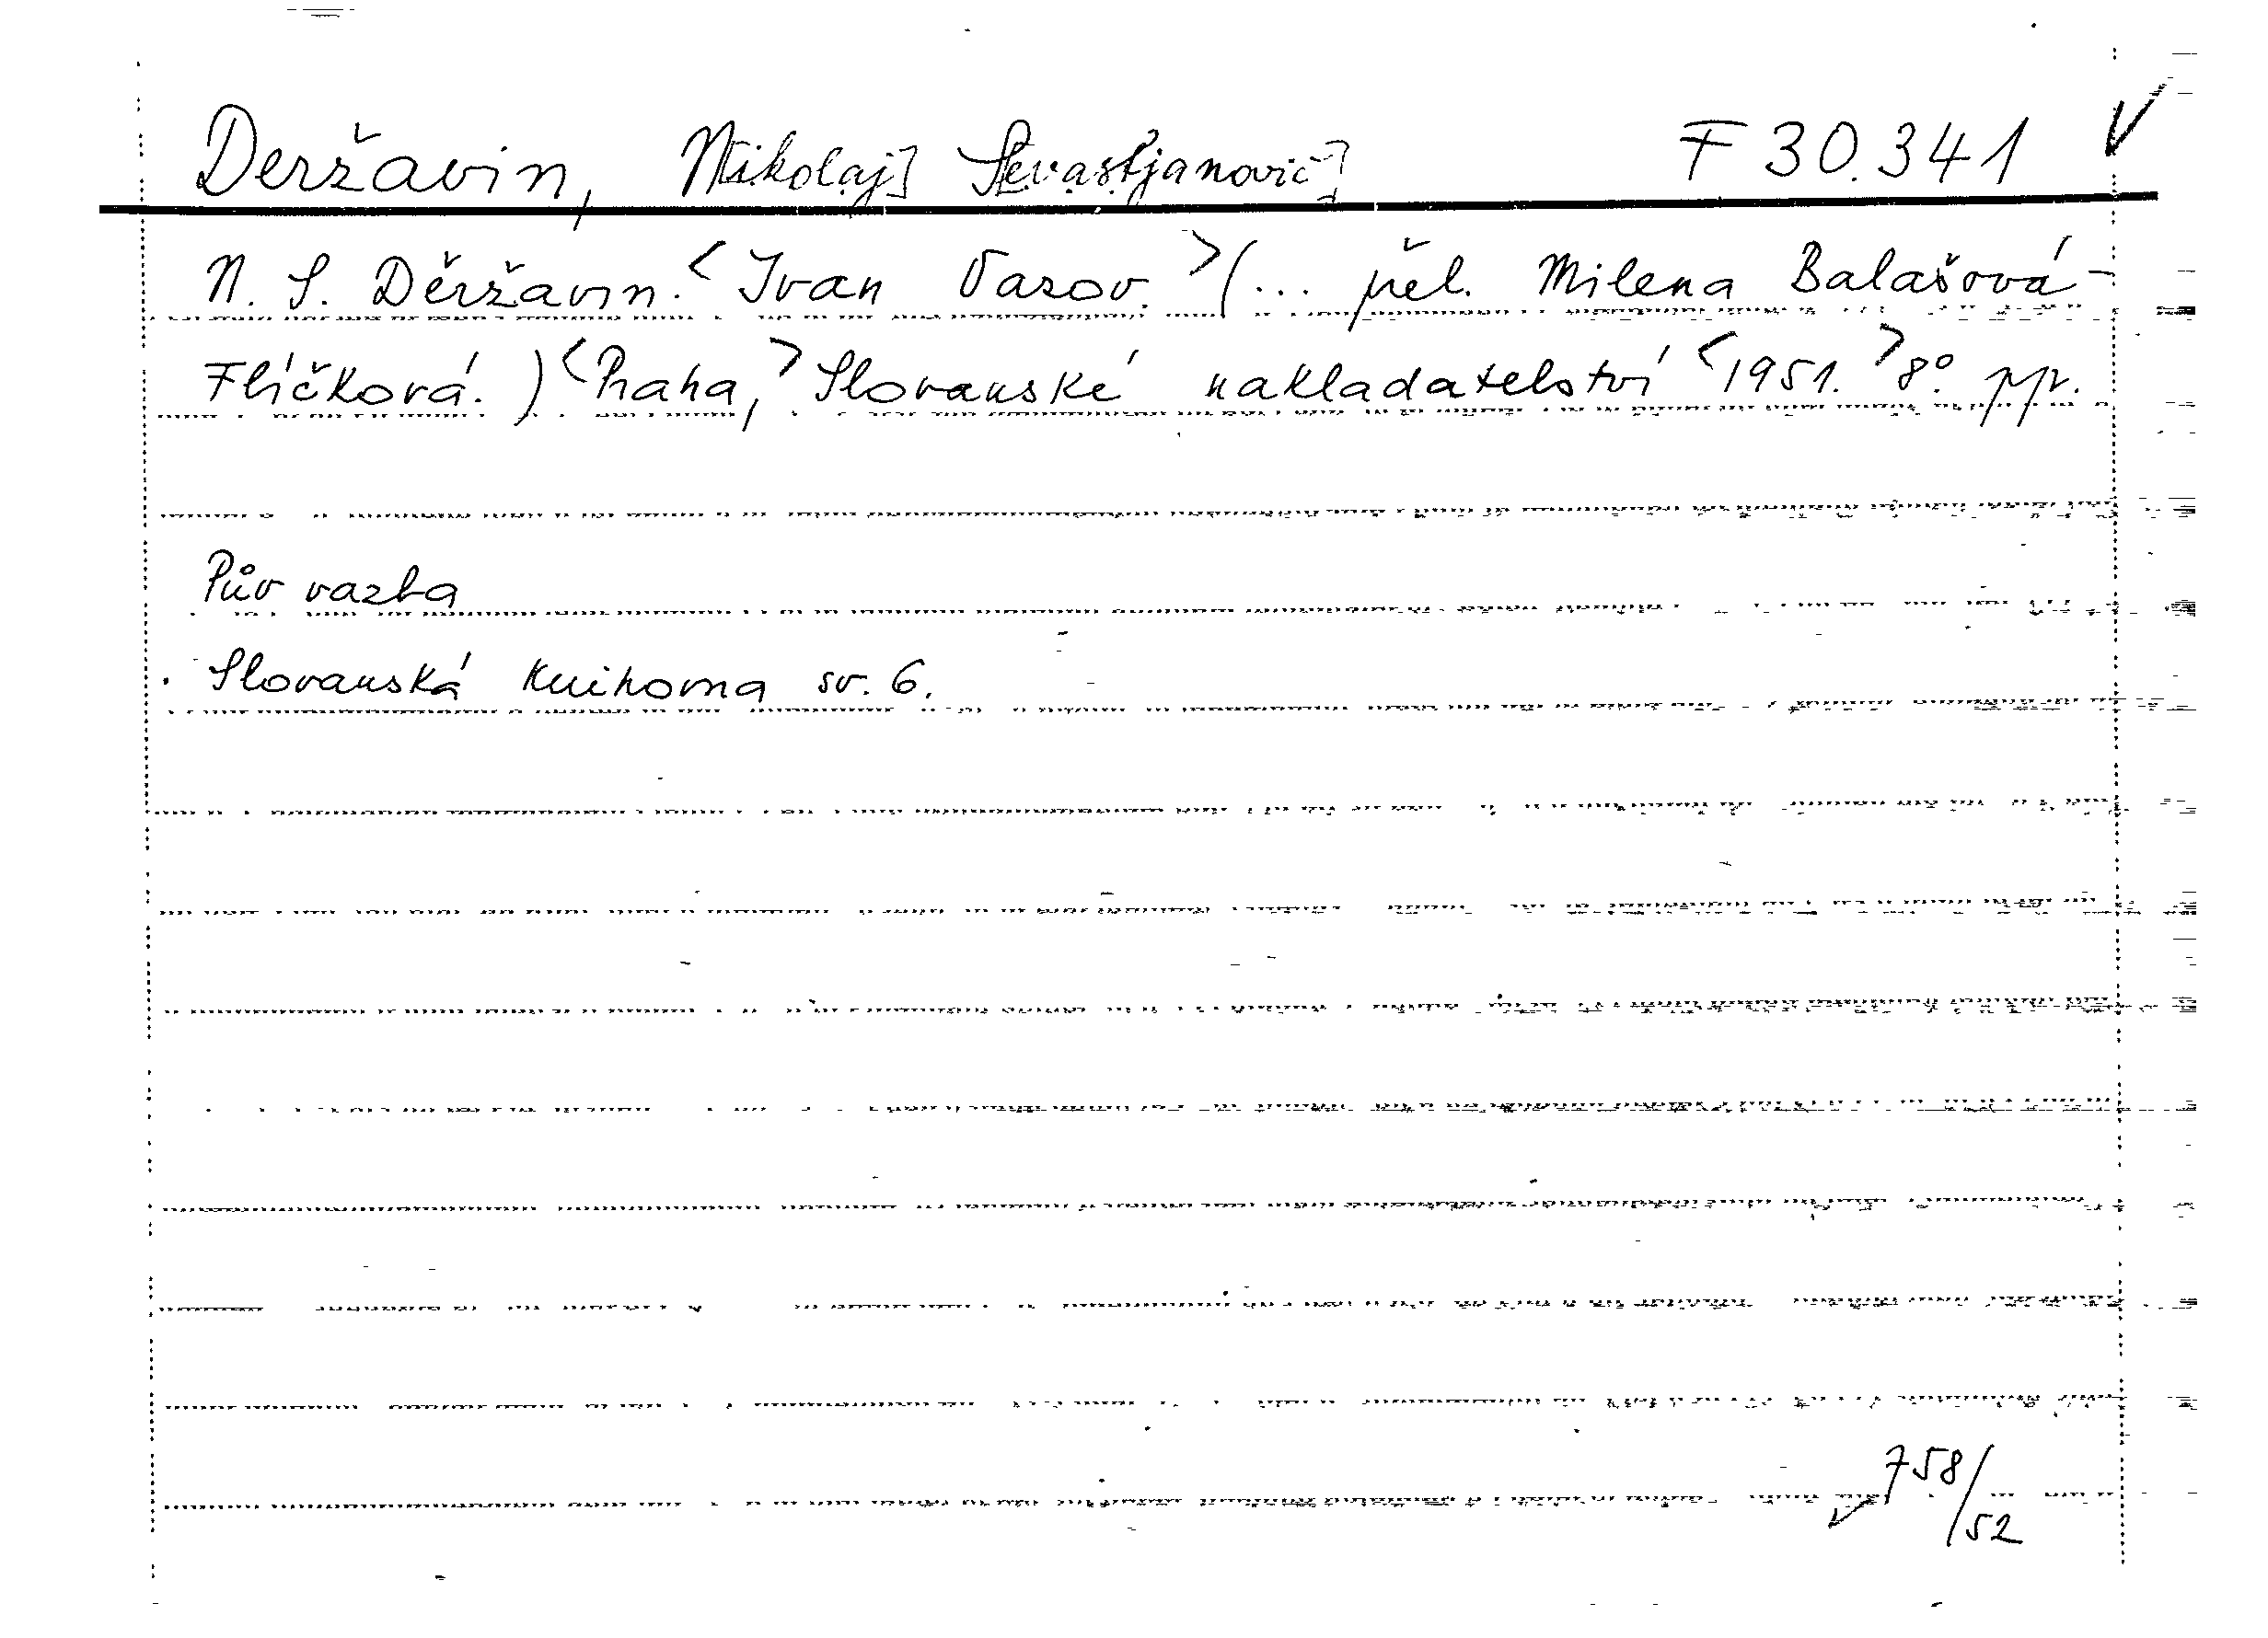 Deržavin, N[ikolaj] S[evastjanovič] F 30.341
N. S. Děržavin. <Ivan Vazov.> (... přel. Milena Balašová-
Flíčková.) <Praha,> Slovanské nakladatelství <1951.> 8° pp.
Pův vazba
Slovanská knihovna sv. 6.
758/52